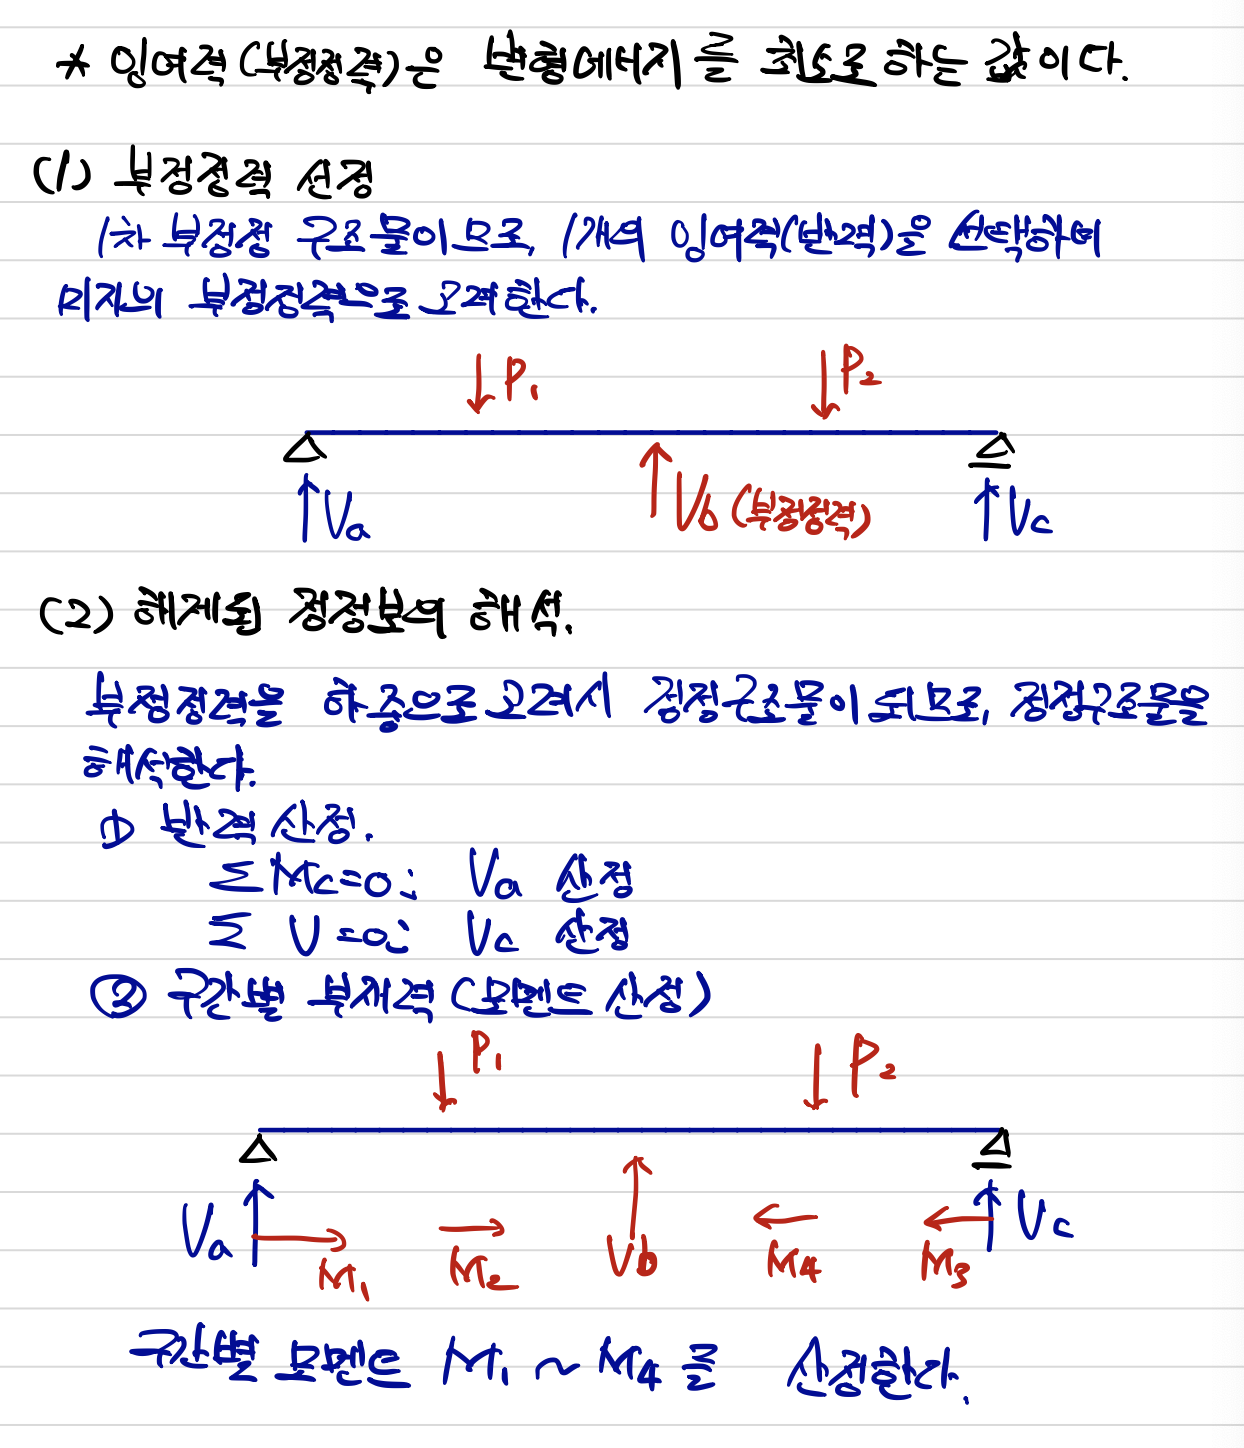 * 잉여력(부정정력)은 변형에너지를 최소로 하는 값이다.
(1) 부정정력 선정
1차 부정정 구조물이므로, 1개의 잉여력(반력)을 선택하여
미지의 부정정력으로 고려한다.
P₁ P₂
Va Vb (부정정력) Vc
(2) 해제된 정정보의 해석.
부정정력을 하중으로 고려시 정정구조물이 되므로, 정정구조물을
해석한다.
① 반력 산정.
ΣMc=0; Va 산정
ΣV=0; Vc 산정
② 구간별 부재력 (모멘트 산정)
P₁ P₂
Va M₁ M₂ Vb M₄ M₃ Vc
구간별 모멘트 M₁ ~ M₄를 산정한다.